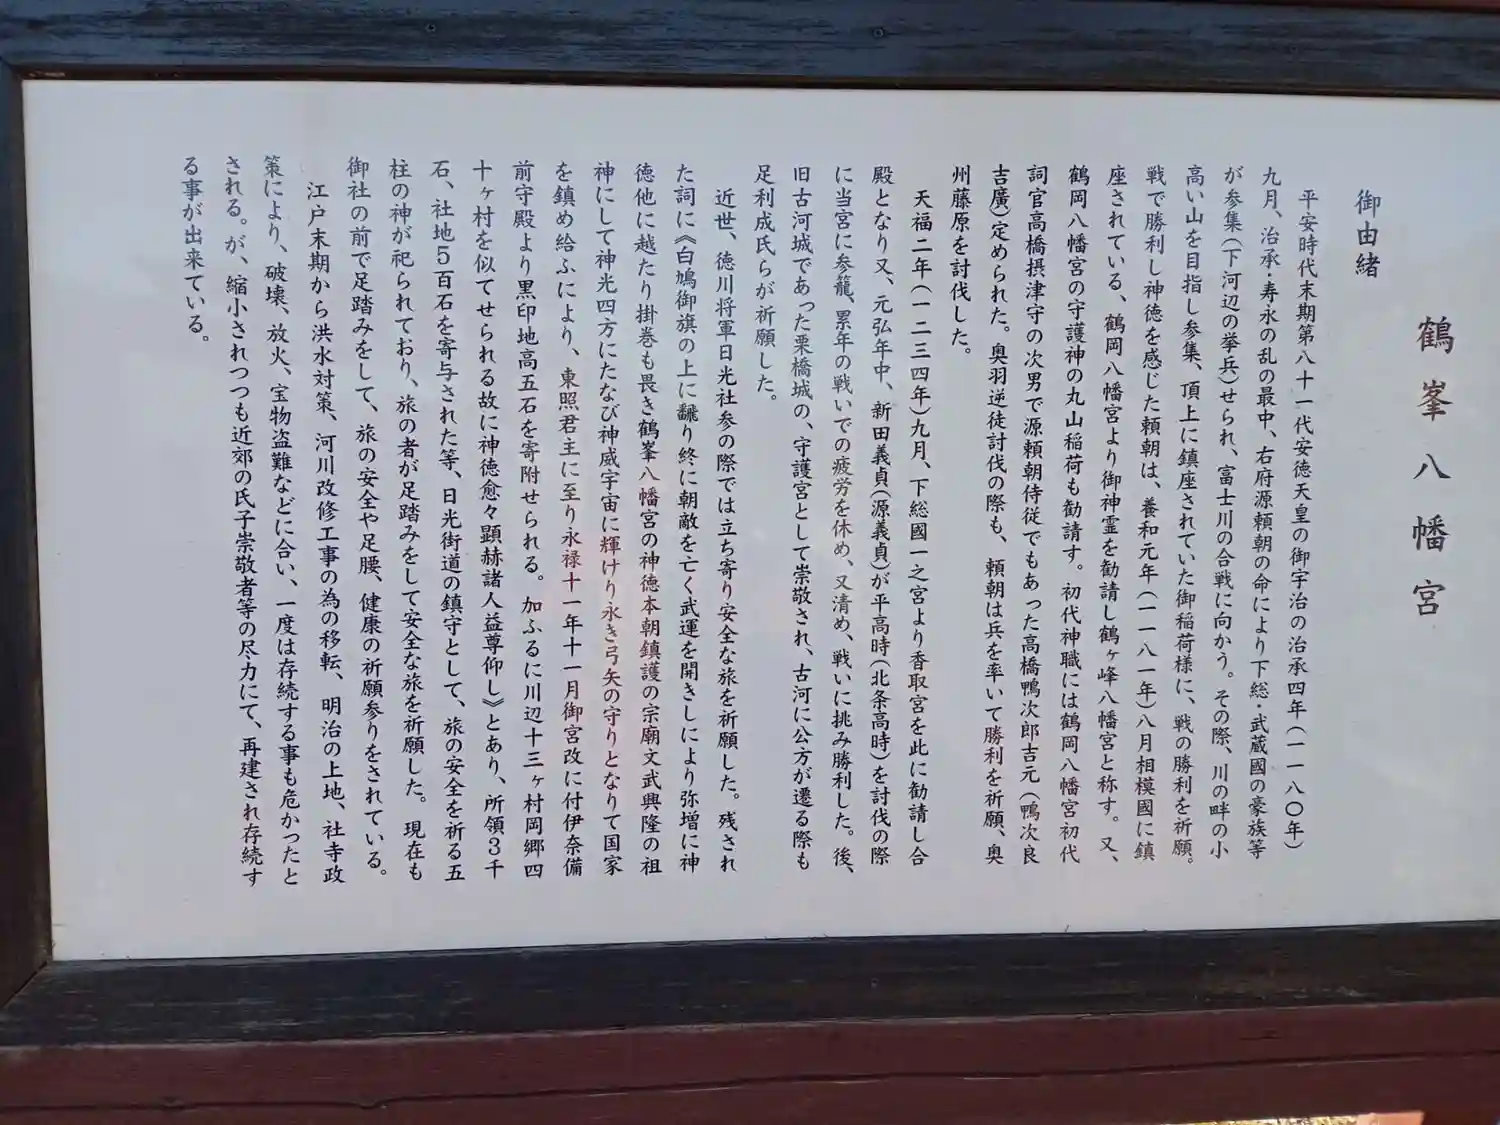 鶴峯八幡宮
御由緒
平安時代末期第八十一代安徳天皇の御宇治の治承四年(一一八〇年)
九月、治承・寿永の乱の最中、右府源頼朝の命により下総・武蔵國の豪族等
が参集(下河辺の挙兵)せられ、富士川の合戦に向かう。その際、川の畔の小
高い山を目指し参集、頂上に鎮座されていた御稲荷様に、戦の勝利を祈願。
戦で勝利し神徳を感じた頼朝は、養和元年(一一八一年)八月相模國に鎮
座されている、鶴岡八幡宮より御神霊を勧請し鶴ヶ峰八幡宮と称す。又、
鶴岡八幡宮の守護神の丸山稲荷も勧請す。初代神職には鶴岡八幡宮初代
詞官高橋摂津守の次男で源頼朝侍従でもあった高橋鴨次郎吉元(鴨次良
吉廣)定められた。奥羽逆徒討伐の際も、頼朝は兵を率いて勝利を祈願、奥
州藤原を討伐した。
天福二年(一二三四年)九月、下総國一之宮より香取宮を此に勧請し合
殿となり又、元弘年中、新田義貞(源義貞)が平高時(北条高時)を討伐の際
に当宮に参籠、累年の戦いでの疲労を休め、又清め、戦いに挑み勝利した。後、
旧古河城であった栗橋城の、守護宮として崇敬され、古河に公方が遷る際も
足利成氏らが祈願した。
近世、徳川将軍日光社参の際では立ち寄り安全な旅を祈願した。残され
た詞に《白鳩御旗の上に飜り終に朝敵を亡く武運を開きしにより弥増に神
徳他に越たり掛巻も畏き鶴峯八幡宮の神徳本朝鎮護の宗廟文武興隆の祖
神にして神光四方にたなび神威宇宙に輝けり永き弓矢の守りとなりて国家
を鎮め給ふにより、東照君主に至り永禄十一年十一月御宮改に付伊奈備
前守殿より黒印地高五石を寄附せられる。加ふるに川辺十三ヶ村岡郷四
十ヶ村を似てせられる故に神徳愈々顕赫諸人益尊仰し》とあり、所領3千
石、社地5百石を寄与された等、日光街道の鎮守として、旅の安全を祈る五
柱の神が祀られており、旅の者が足踏みをして安全な旅を祈願した。現在も
御社の前で足踏みをして、旅の安全や足腰、健康の祈願参りをされている。
江戸末期から洪水対策、河川改修工事の為の移転、明治の上地、社寺政
策により、破壊、放火、宝物盗難などに合い、一度は存続する事も危かつたと
される。が、縮小されつつも近郊の氏子崇敬者等の尽力にて、再建され存続す
る事が出来ている。